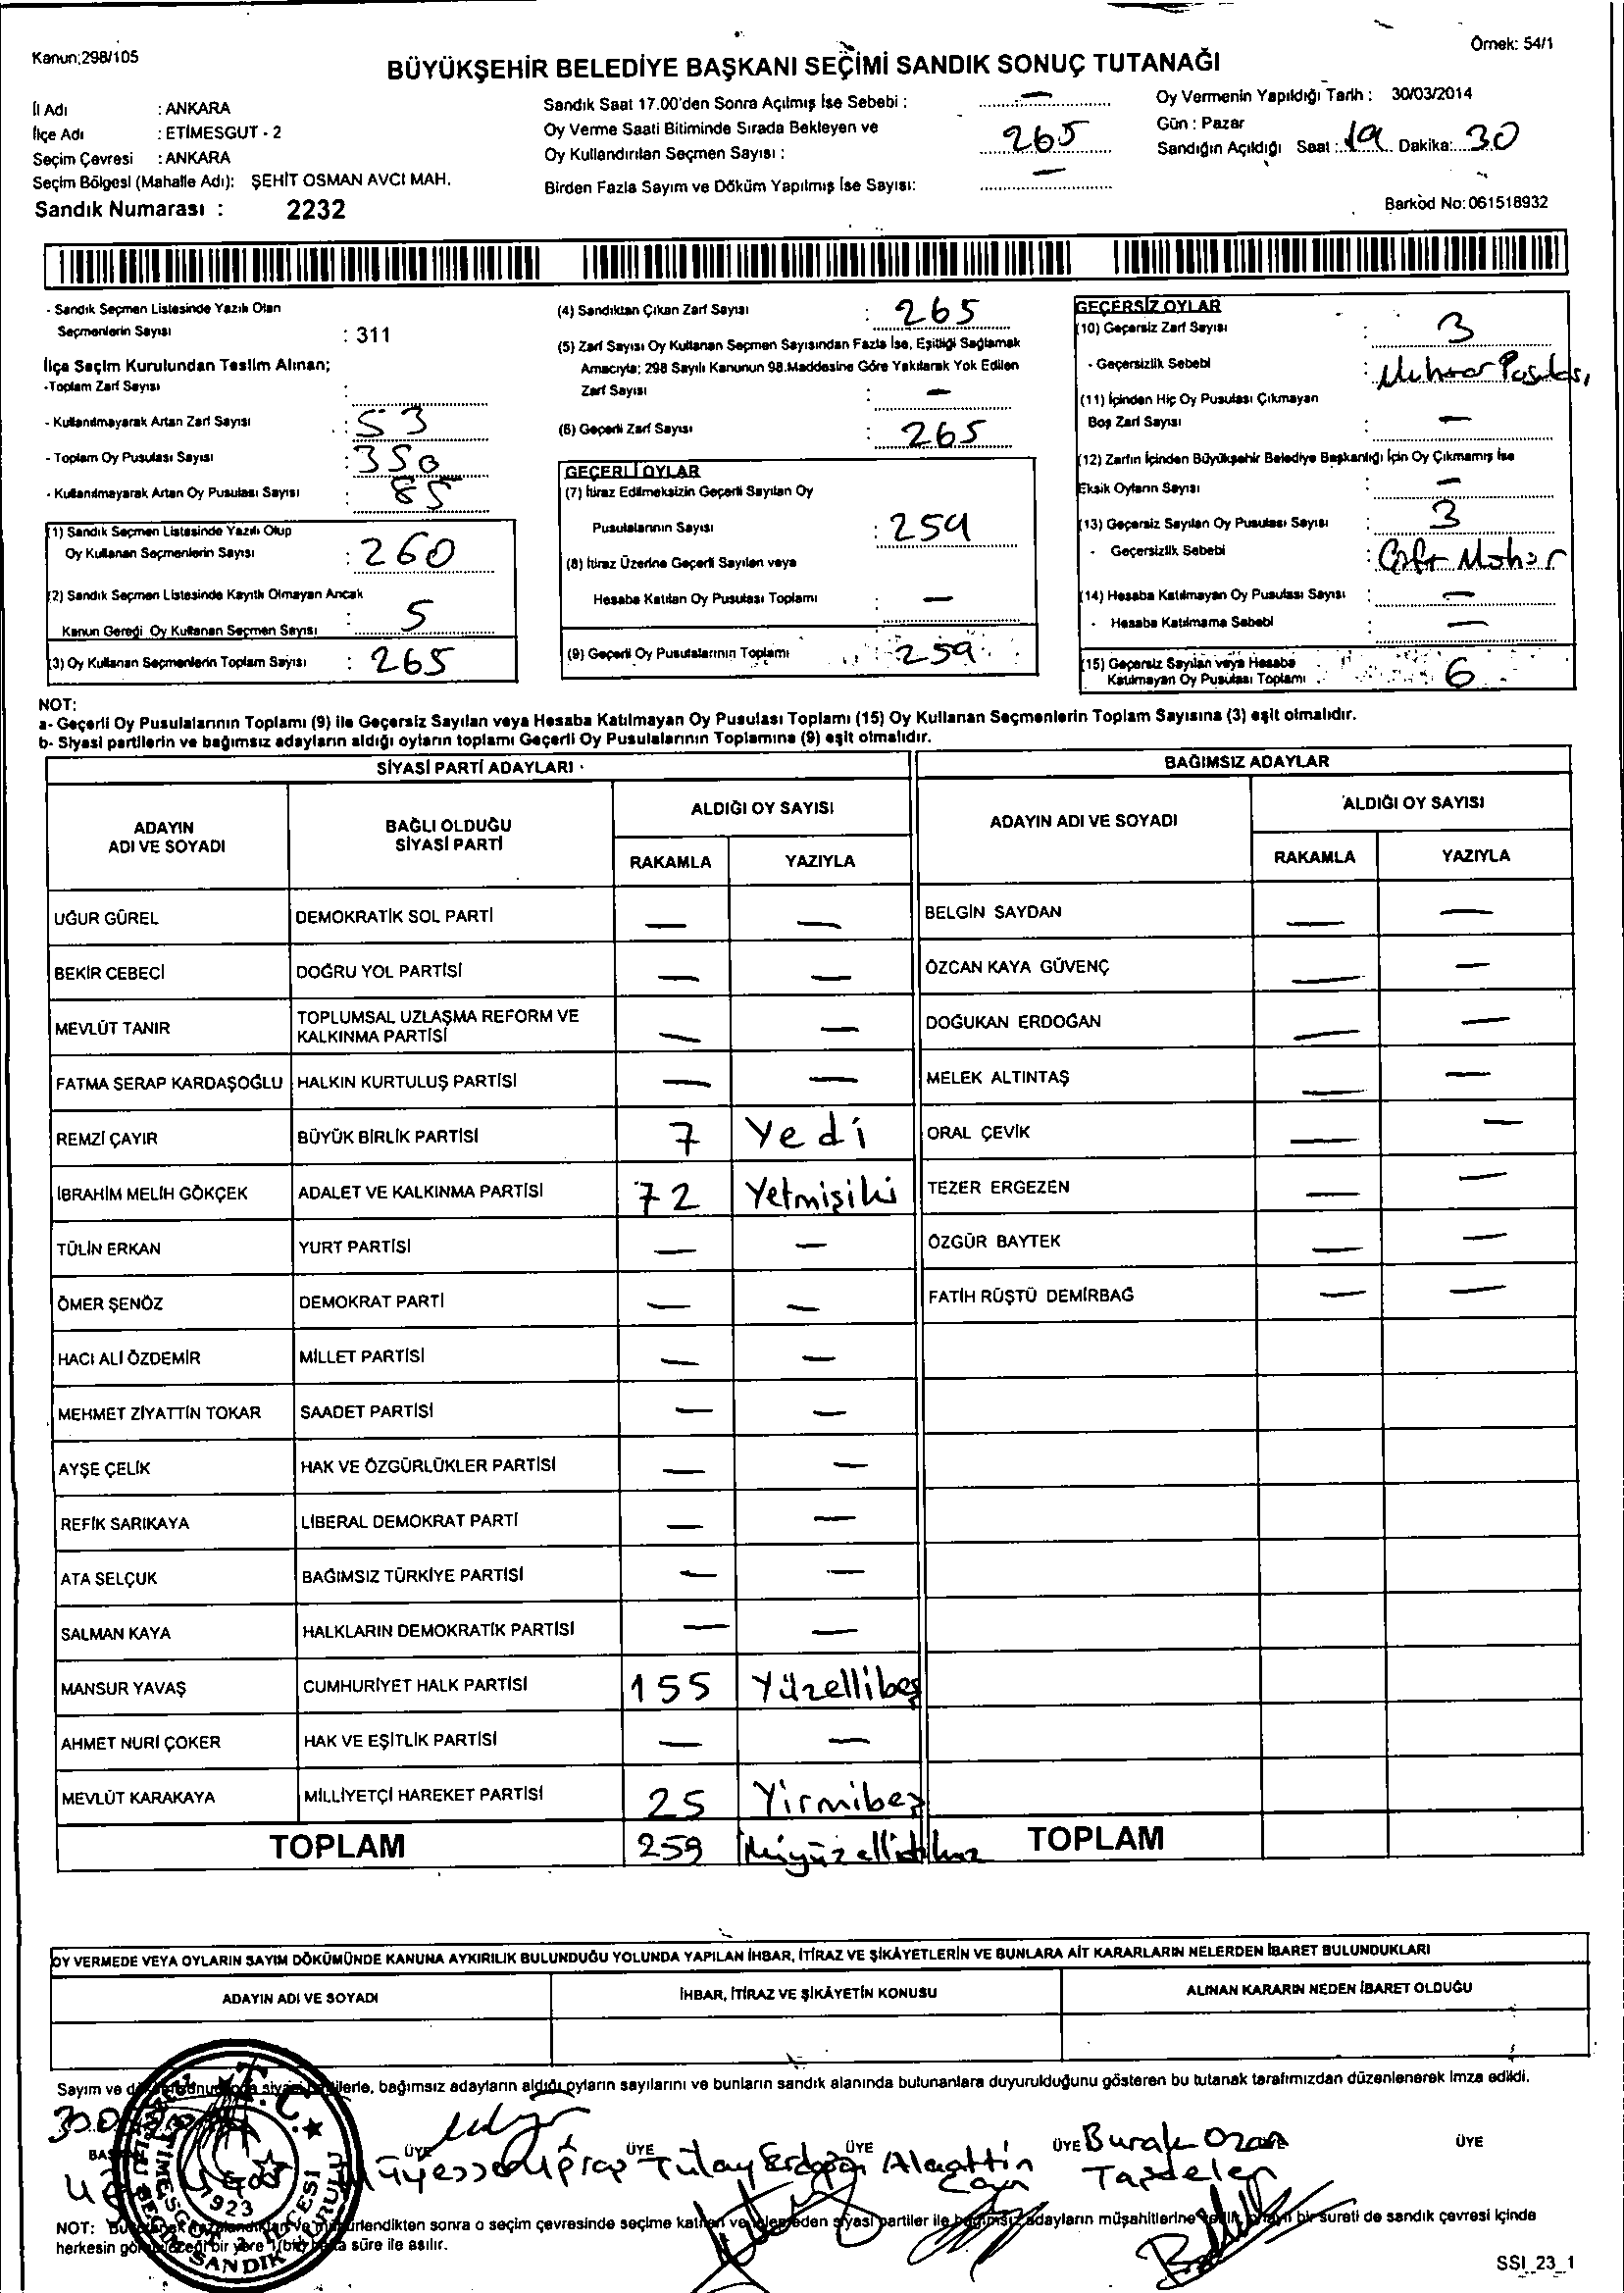 Kanun;298/105
Örnek: 54/1
BÜYÜKŞEHİR BELEDİYE BAŞKANI SEÇİMİ SANDIK SONUÇ TUTANAĞI
İl Adı : ANKARA
İlçe Adı : ETİMESGUT - 2
Seçim Çevresi : ANKARA
Seçim Bölgesi (Mahalle Adı): ŞEHİT OSMAN AVCI MAH.
Sandık Numarası : 2232
Sandık Saat 17.00'den Sonra Açılmış İse Sebebi : —
Oy Verme Saati Bitiminde Sırada Bekleyen ve
Oy Kullandırılan Seçmen Sayısı : 265
Birden Fazla Sayım ve Döküm Yapılmış İse Sayısı: —
Oy Vermenin Yapıldığı Tarih : 30/03/2014
Gün : Pazar
Sandığın Açıldığı Saat : 19 Dakika: 30
Barkod No: 061518932
- Sandık Seçmen Listesinde Yazılı Olan
Seçmenlerin Sayısı : 311
İlçe Seçim Kurulundan Teslim Alınan;
-Toplam Zarf Sayısı :
- Kullanılmayarak Artan Zarf Sayısı : 53
- Toplam Oy Pusulası Sayısı : 350
- Kullanılmayarak Artan Oy Pusulası Sayısı : 85
(1) Sandık Seçmen Listesinde Yazılı Olup
Oy Kullanan Seçmenlerin Sayısı : 260
(2) Sandık Seçmen Listesinde Kayıtlı Olmayan Ancak
Kanun Gereği Oy Kullanan Seçmen Sayısı : 5
(3) Oy Kullanan Seçmenlerin Toplam Sayısı : 265
(4) Sandıktan Çıkan Zarf Sayısı : 265
(5) Zarf Sayısı Oy Kullanan Seçmen Sayısından Fazla İse, Eşitliği Sağlamak
Amacıyla; 298 Sayılı Kanunun 98.Maddesine Göre Yakılarak Yok Edilen
Zarf Sayısı : —
(6) Geçerli Zarf Sayısı : 265
GEÇERLİ OYLAR
(7) İtiraz Edilmeksizin Geçerli Sayılan Oy
Pusulalarının Sayısı : 259
(8) İtiraz Üzerine Geçerli Sayılan veya
Hesaba Katılan Oy Pusulası Toplamı : —
(9) Geçerli Oy Pusulalarının Toplamı : 259
GEÇERSİZ OYLAR
(10) Geçersiz Zarf Sayısı : 3
- Geçersizlik Sebebi :
(11) İçinden Hiç Oy Pusulası Çıkmayan
Boş Zarf Sayısı : —
(12) Zarfın İçinden Büyükşehir Belediye Başkanlığı İçin Oy Çıkmamış İse
Eksik Oyların Sayısı : —
(13) Geçersiz Sayılan Oy Pusulası Sayısı : 3
- Geçersizlik Sebebi : Çift Mühür
(14) Hesaba Katılmayan Oy Pusulası Sayısı : —
- Hesaba Katılmama Sebebi : —
(15) Geçersiz Sayılan veya Hesaba
Katılmayan Oy Pusulası Toplamı : 6
NOT:
a- Geçerli Oy Pusulalarının Toplamı (9) ile Geçersiz Sayılan veya Hesaba Katılmayan Oy Pusulası Toplamı (15) Oy Kullanan Seçmenlerin Toplam Sayısına (3) eşit olmalıdır.
b- Siyasi partilerin ve bağımsız adayların aldığı oyların toplamı Geçerli Oy Pusulalarının Toplamına (9) eşit olmalıdır.
SİYASİ PARTİ ADAYLARI
BAĞIMSIZ ADAYLAR
ADAYIN ADI VE SOYADI
BAĞLI OLDUĞU SİYASİ PARTİ
ALDIĞI OY SAYISI
RAKAMLA YAZIYLA
ADAYIN ADI VE SOYADI
ALDIĞI OY SAYISI
RAKAMLA YAZIYLA
UĞUR GÜREL DEMOKRATİK SOL PARTİ — — BELGİN SAYDAN — —
BEKİR CEBECİ DOĞRU YOL PARTİSİ — — ÖZCAN KAYA GÜVENÇ — —
MEVLÜT TANIR TOPLUMSAL UZLAŞMA REFORM VE KALKINMA PARTİSİ — — DOĞUKAN ERDOĞAN — —
FATMA SERAP KARDAŞOĞLU HALKIN KURTULUŞ PARTİSİ — — MELEK ALTINTAŞ — —
REMZİ ÇAYIR BÜYÜK BİRLİK PARTİSİ 7 Yedi ORAL ÇEVİK — —
İBRAHİM MELİH GÖKÇEK ADALET VE KALKINMA PARTİSİ 72 Yetmişiki TEZER ERGEZEN — —
TÜLİN ERKAN YURT PARTİSİ — — ÖZGÜR BAYTEK — —
ÖMER ŞENÖZ DEMOKRAT PARTİ — — FATİH RÜŞTÜ DEMİRBAĞ — —
HACI ALİ ÖZDEMİR MİLLET PARTİSİ — —
MEHMET ZİYATTİN TOKAR SAADET PARTİSİ — —
AYŞE ÇELİK HAK VE ÖZGÜRLÜKLER PARTİSİ — —
REFİK SARIKAYA LİBERAL DEMOKRAT PARTİ — —
ATA SELÇUK BAĞIMSIZ TÜRKİYE PARTİSİ — —
SALMAN KAYA HALKLARIN DEMOKRATİK PARTİSİ — —
MANSUR YAVAŞ CUMHURİYET HALK PARTİSİ 155 Yüzellibeş
AHMET NURİ ÇOKER HAK VE EŞİTLİK PARTİSİ — —
MEVLÜT KARAKAYA MİLLİYETÇİ HAREKET PARTİSİ 25 Yirmibeş
TOPLAM 259 TOPLAM
OY VERMEDE VEYA OYLARIN SAYIM DÖKÜMÜNDE KANUNA AYKIRILIK BULUNDUĞU YOLUNDA YAPILAN İHBAR, İTİRAZ VE ŞİKÂYETLERİN VE BUNLARA AİT KARARLARIN NELERDEN İBARET BULUNDUKLARI
ADAYIN ADI VE SOYADI İHBAR, İTİRAZ VE ŞİKÂYETİN KONUSU ALINAN KARARIN NEDEN İBARET OLDUĞU
Sayım ve bağımsız adayların aldığı oyların sayılarını ve bunların sandık alanında bulunanlara duyurulduğunu gösteren bu tutanak tarafımızdan düzenlenerek imza edildi.
ÜYE ÜYE ÜYE ÜYE ÜYE
Tülay Erdoğan Alaattin Burak Ozan
Taşdelen
T.C.
1923
NOT: sonra o seçim çevresinde seçime siyasi partiler ile bağımsız adayların müşahitlerine sureti de sandık çevresi içinde
herkesin bir yere süre ile asılır.
SSI_23_1